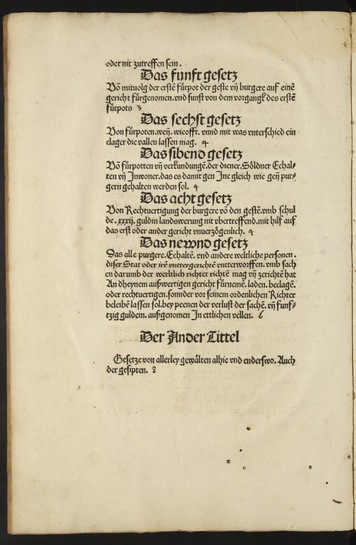 oder nit zutreffen sein.
Das funft gesetz
Võ mituolg der erstẽ fürpot der geste vñ burgere auf einẽ
gericht fürgenomen. vnd sunst von dem vorgangk des erstẽ
fürpots 3
Das sechst gesetz
Von fürpoten. weñ. wieofft. vmd mit was vnterschied ein
clager die vallen lassen mag. 4
Das sibend gesetz
Võ fürpotten vñ verkundungẽ. der diener. Söldner Ehal⸗
ten vñ Inwoner. das es damit gen Jne gleich wie geñ pur⸗
gern gehalten werden sol. 4
Das acht gesetz
Von Rechtuertigung der burgere võ den gestẽ. vmb schul
de. xxxij. guldin landswerung nit vbertreffend. mit hilf auf
das erst oder ander gericht vnuerzögenlich. 4
Das newnd gesetz
Das alle purgere. Ehaltẽ. vnd andere weltliche personen.
diser Stat oder irẽ vntergerichtẽ vnterworffen. vmb sach
en darumb der werltlich richter richtẽ mag vñ zerichtẽ hat
An dheynem auswertigen gericht fürnemẽ. laden. beclagẽ.
oder rechtuertigen. sonnder vor seinem ordenlichen Richter
beleibẽ lassen söl bey peenen der verlust der sachẽ. vñ funf⸗
tzig guldein. aufgenomen In ettlichen vellen. 6
Der Ander Tittel
Gesetze von allerley gewälten alhie vnd enderswo. Auch
der gesipten. 8